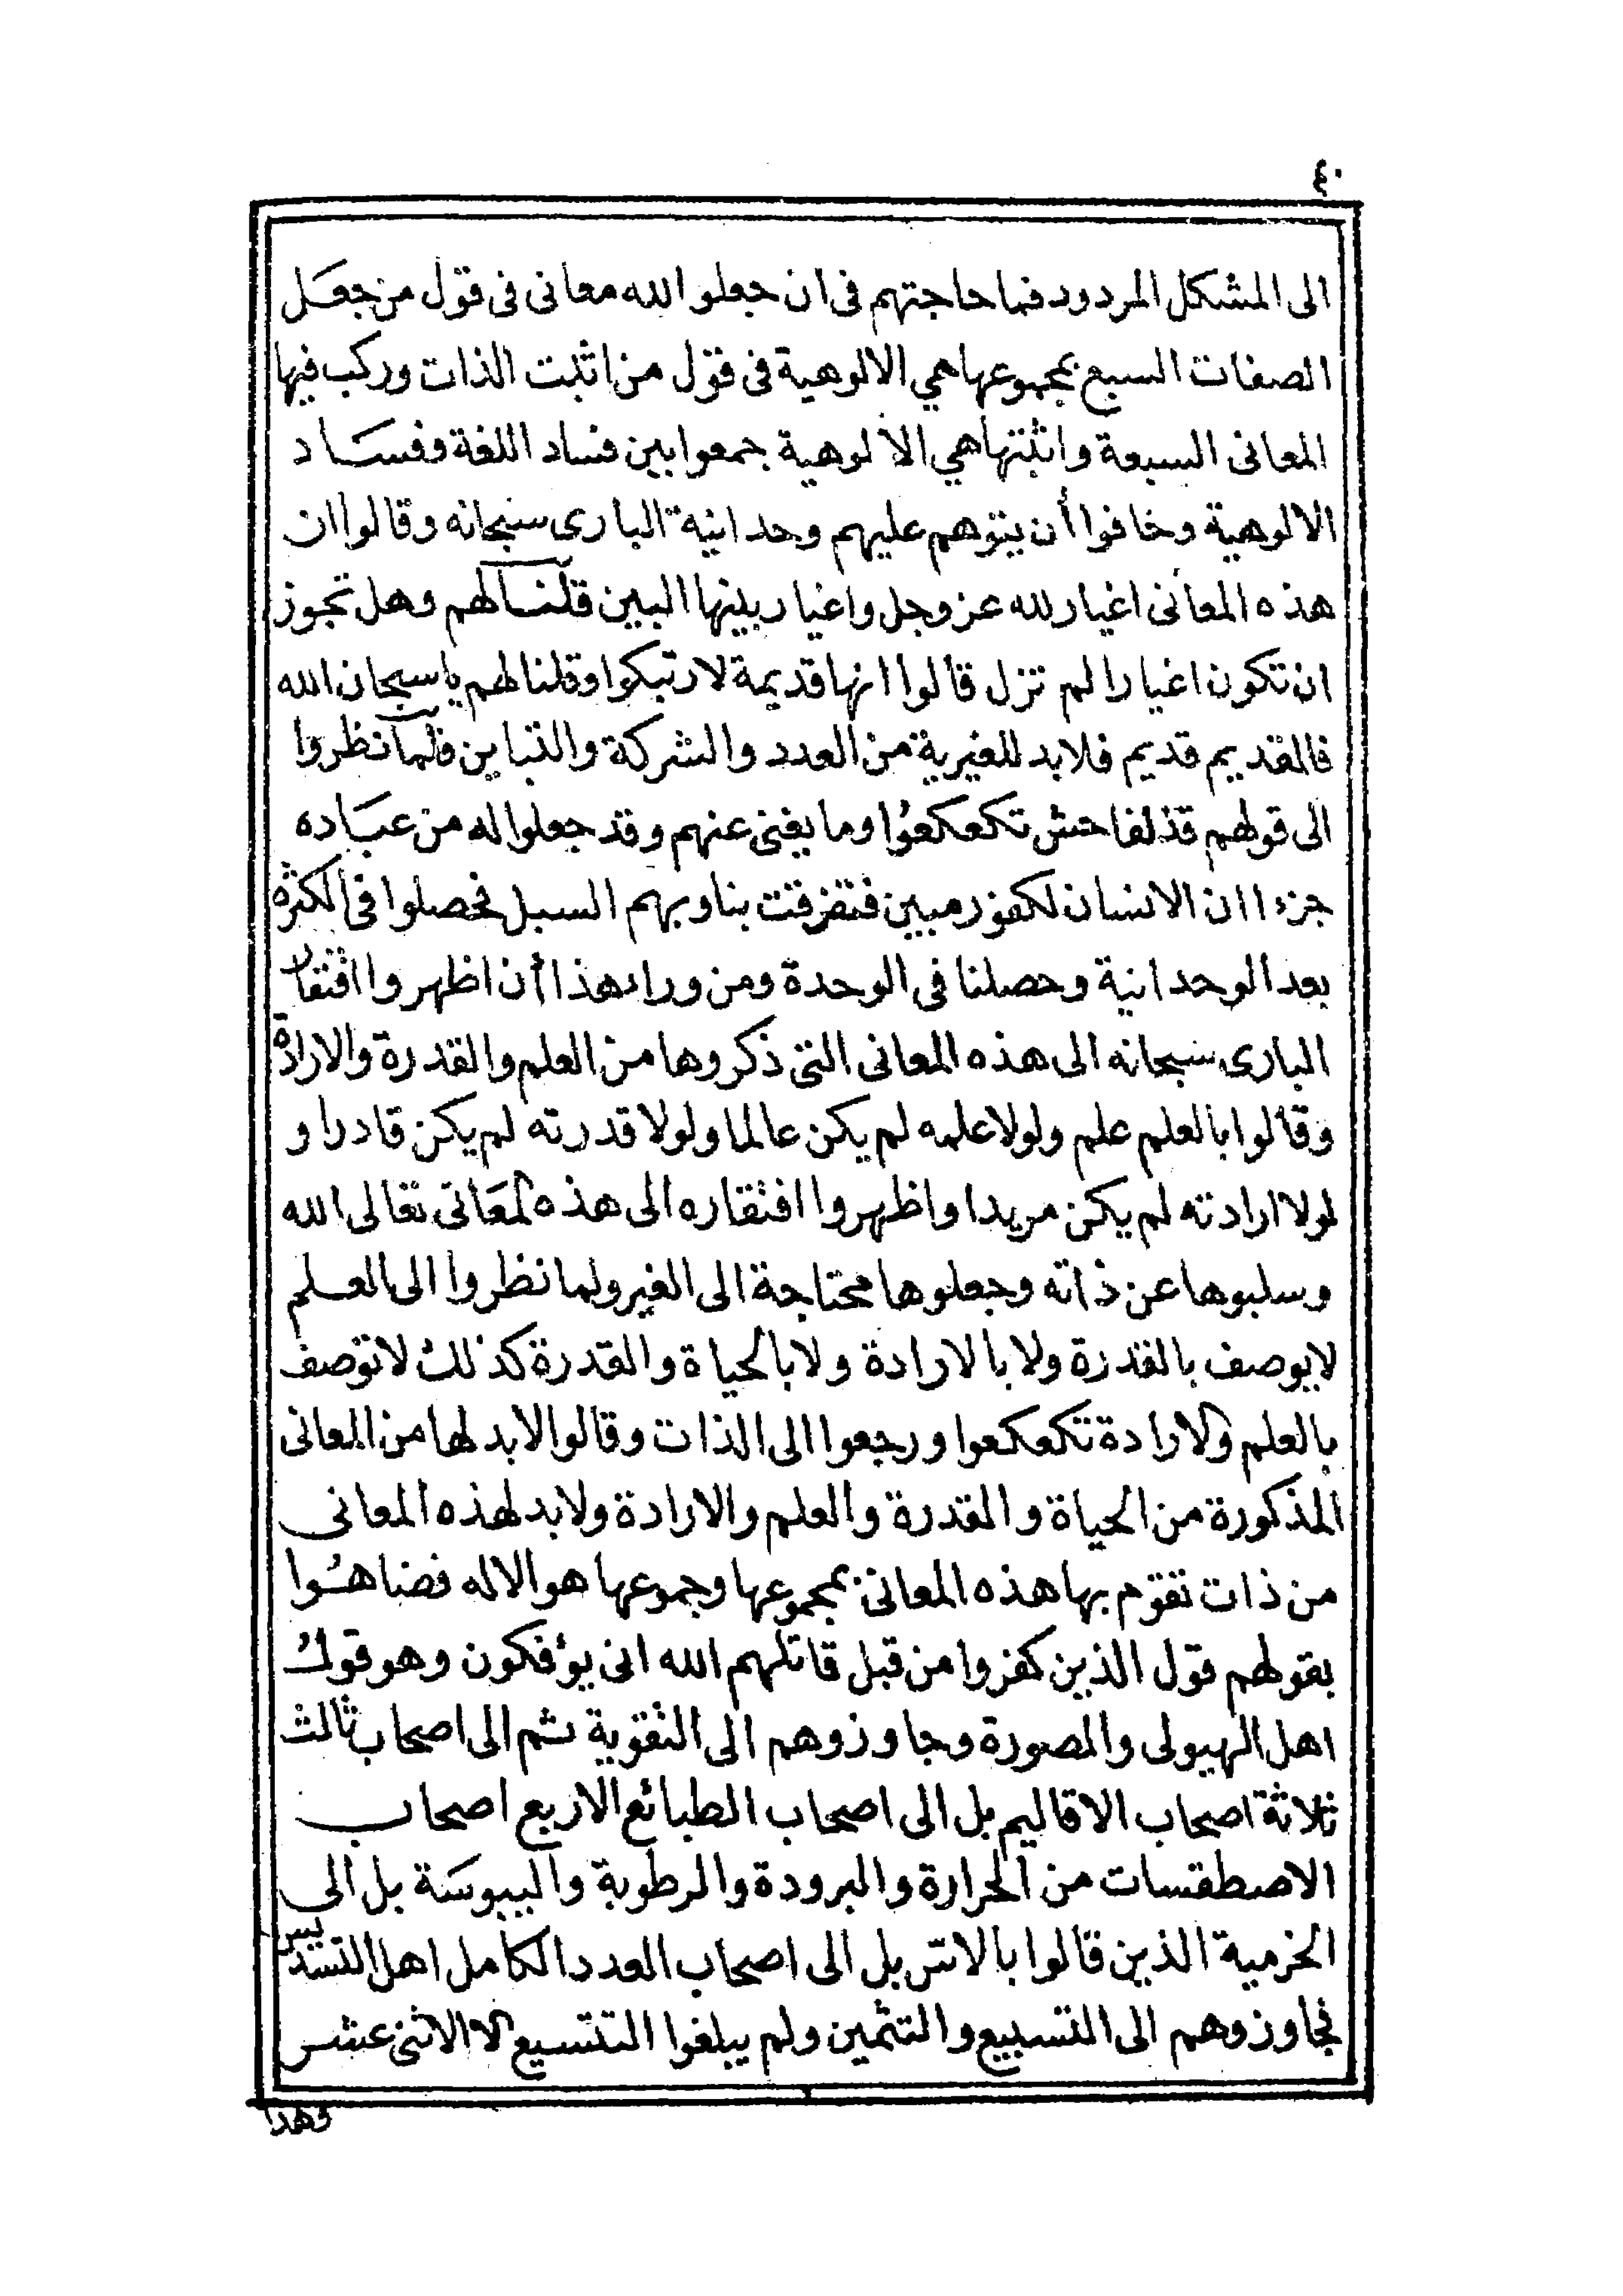 ٤٠
الى المشكل المردود فما حاجتهم فى ان جعلوا لله معانى فى قول من جعل
الصفات السبع بمجموعها هي الالوهية فى قول من اثبت الذات وركب فيها
المعانى السبعة واثبتها هي الالوهية جمعوا بين فساد اللغة وفساد
الالوهية وخافوا أن يتوهم عليهم وحدانية البارى سبحانه وقالوا ان
هذه المعانى اغيار لله عز وجل واغيار بينها البين قلنا لهم وهل تجوز
ان تكون اغيارا لم تزل قالوا انها قديمة لارتبكوا وقلنا لهم يا سبحان الله
فالقديم قديم فلابد للغيرية من العدد والشركة والتباين فلما نظروا
الى قولهم قذ لفاحش تكعكعوا وما يغنى عنهم وقد جعلوا له من عباده
جزءا ان الانسان لكفور مبين فتفرقت بنا وبهم السبل فحصلوا فى الكثرة
بعد الوحدانية وحصلنا فى الوحدة ومن وراء هذا أن اظهروا افتقار
البارى سبحانه الى هذه المعانى التى ذكروها من العلم والقدرة والارادة
وقالوا بالعلم علم ولولا علمه لم يكن عالما ولولا قدرته لم يكن قادرا و
لولا ارادته لم يكن مريدا واظهروا افتقاره الى هذه المعانى تعالى الله
وسلبوها عن ذاته وجعلوها محتاجة الى الغير ولما نظروا الى العلم
لا يوصف بالقدرة ولا بالارادة ولا بالحياة والقدرة كذلك لا توصف
بالعلم والارادة تكعكعوا ورجعوا الى الذات وقالوا لابد لها من المعانى
المذكورة من الحياة والقدرة والعلم والارادة ولابد لهذه المعانى
من ذات تقوم بها هذه المعانى بمجموعها وجموعها هو الاله فضاهئوا
بقولهم قول الذين كفروا من قبل قاتلهم الله انى يؤفكون وهو قول
اهل الهيولى والصورة وجاوزوهم الى الثقوية ثم الى اصحاب ثالث
ثلاثة اصحاب الاقاليم بل الى اصحاب الطبائع الاربع اصحاب
الاصطقسات من الحرارة والبرودة والرطوبة واليبوسة بل الى
الخرمية الذين قالوا بالاتس بل الى اصحاب العدد الكامل اهل التسديس
فجاوزوهم الى التسبيع والتثمين ولم يبلغوا التتسيع الا الاثنى عشر
وهذا